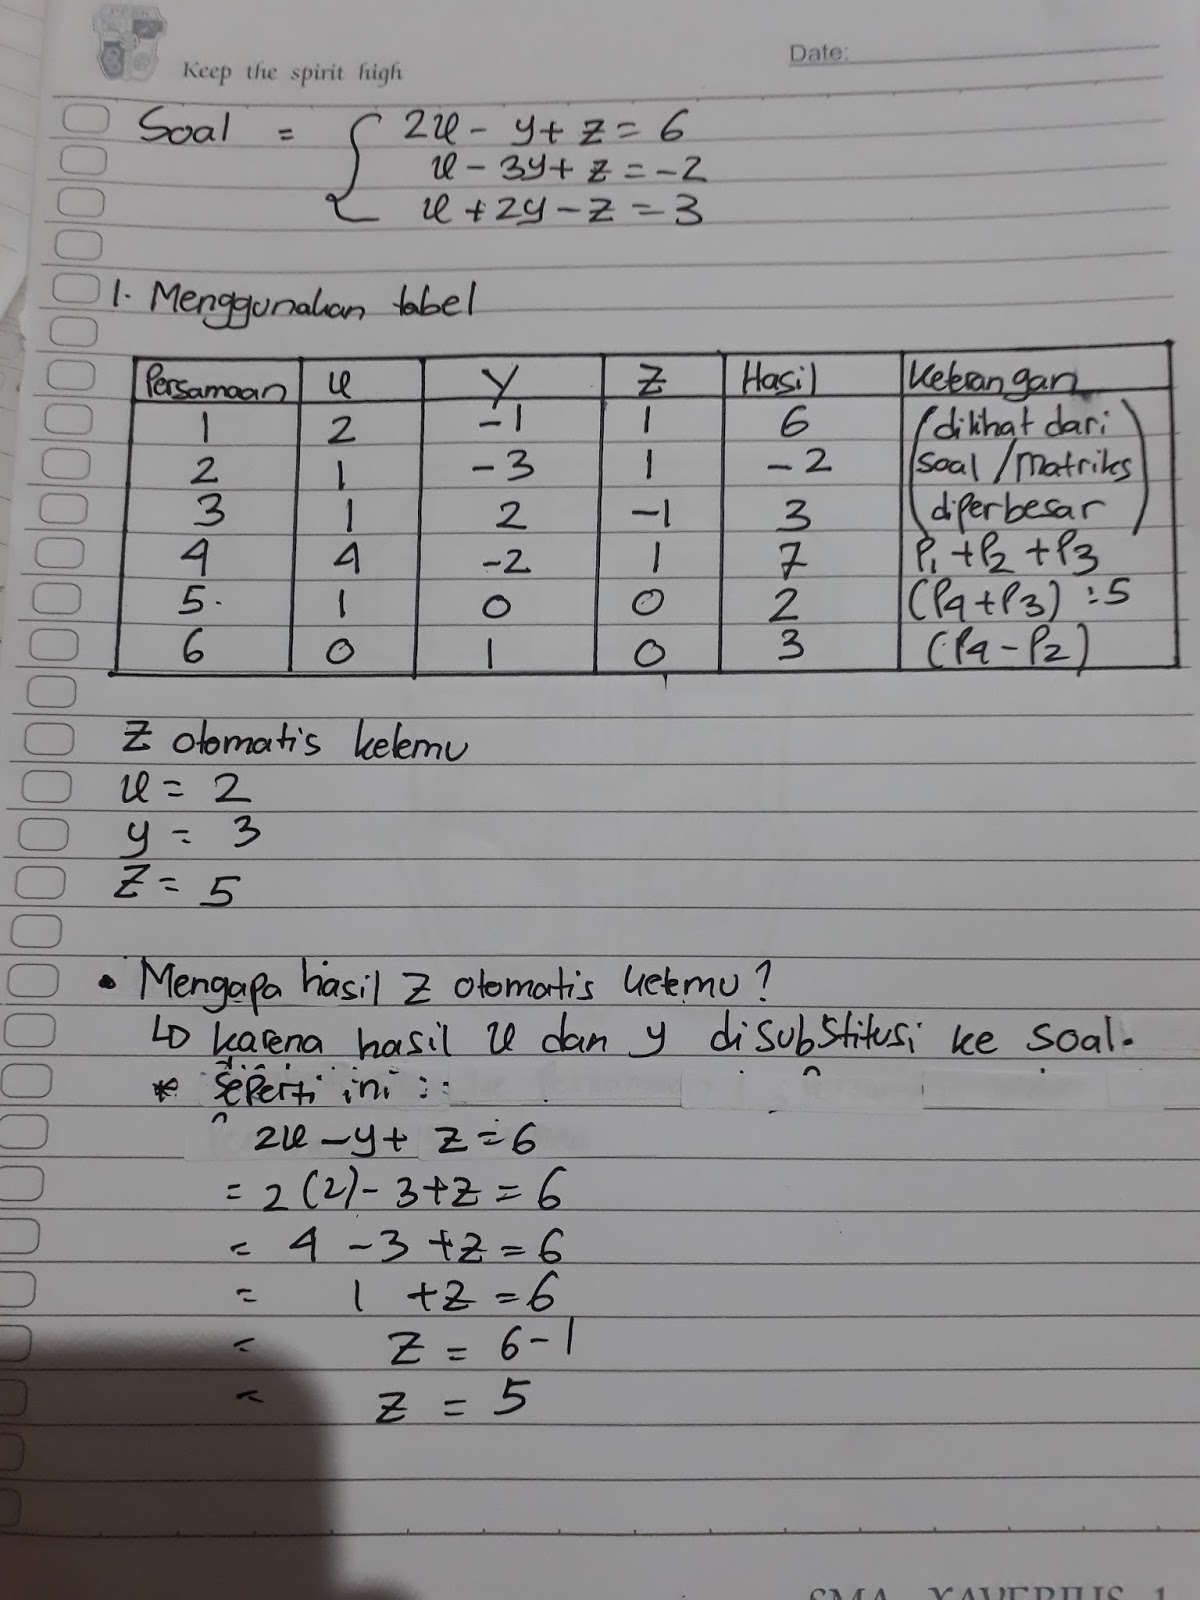 Keep the spirit high
Date:
Soal = { 2x - y + z = 6
x - 3y + z = -2
x + 2y - z = 3
1. Menggunakan tabel
Persamaan x y z Hasil Keterangan
1 2 -1 1 6 (dilihat dari
2 1 -3 1 -2 soal / Matriks
3 1 2 -1 3 diperbesar)
4 4 -2 1 7 P1 + P2 + P3
5. 1 0 0 2 (P4 + P3) : 5
6 0 1 0 3 (P4 - P2)
Z otomatis ketemu
x = 2
y = 3
Z = 5
• Mengapa hasil z otomatis ketemu?
↳ karena hasil x dan y disubstitusi ke soal.
* seperti ini :
2x - y + z = 6
= 2 (2) - 3 + z = 6
= 4 - 3 + z = 6
= 1 + z = 6
= z = 6 - 1
= z = 5
SMA XAVERIUS 1